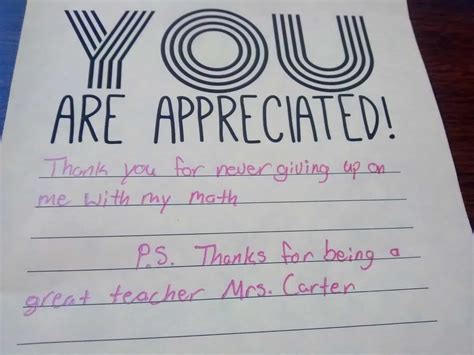 YOU
ARE APPRECIATED!
Thank you for never giving up on
me with my math
P.S. Thanks for being a
great teacher Mrs. Carter